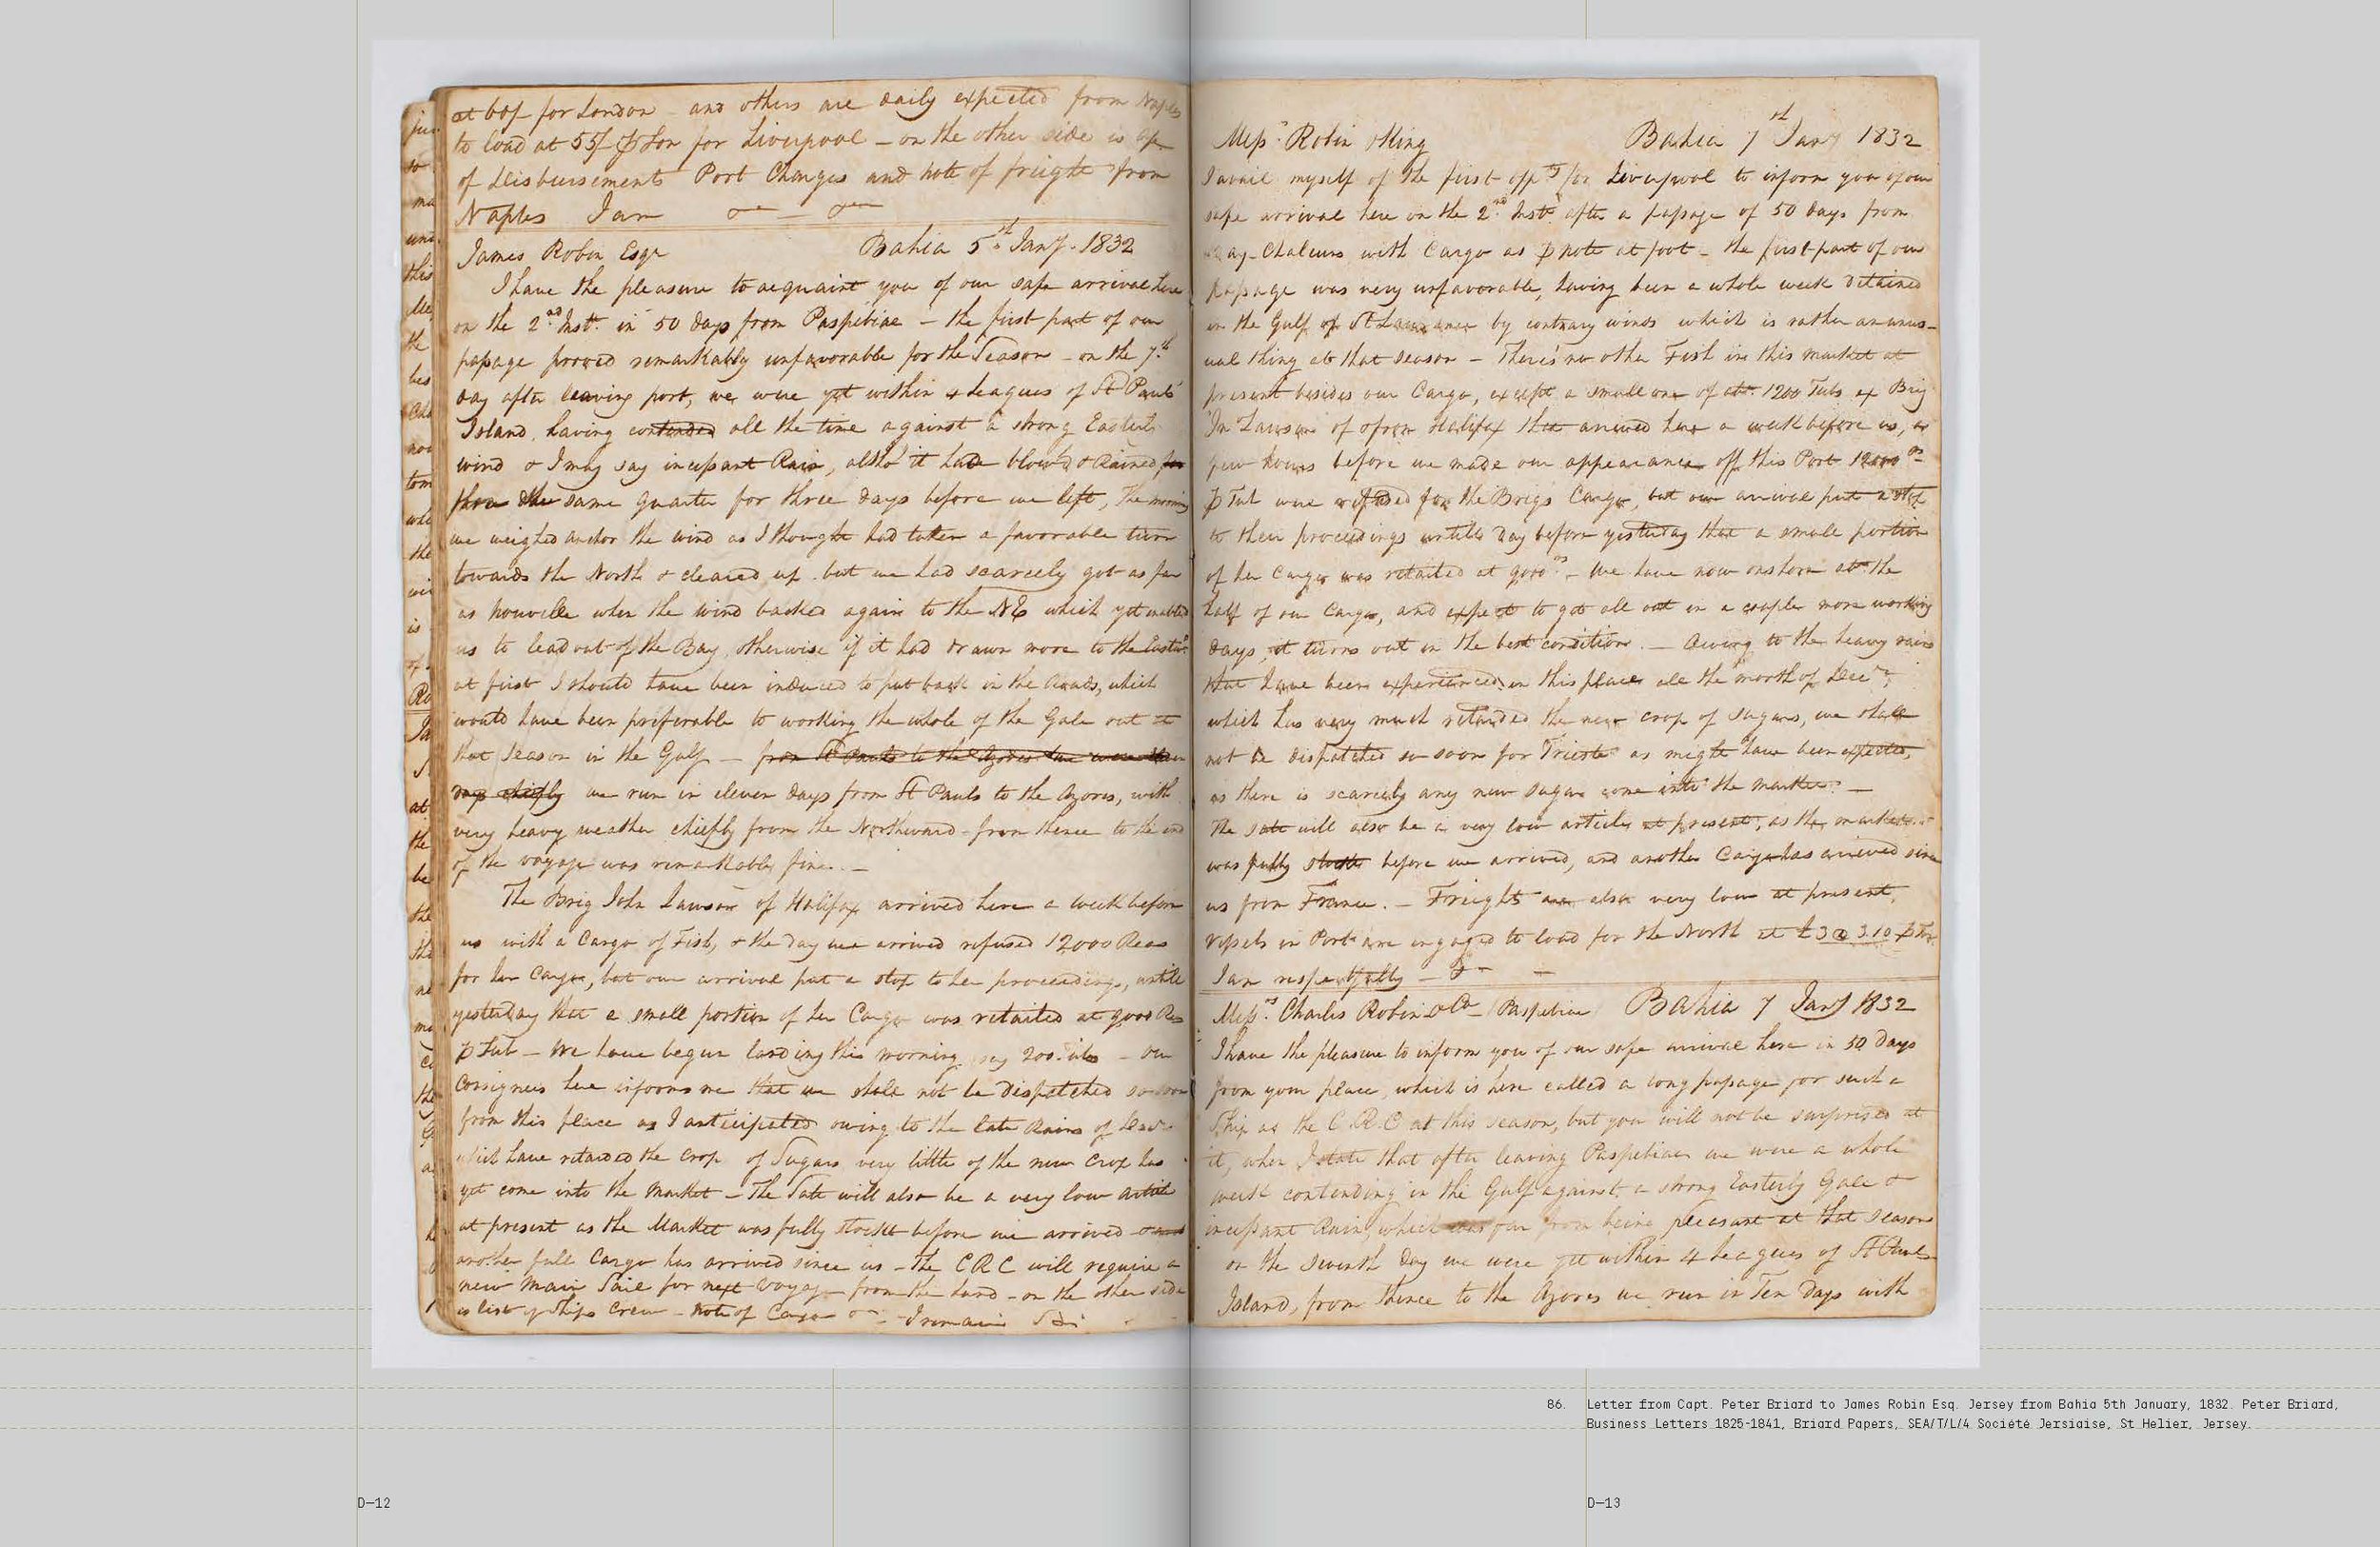 at 60/ for London – and others are daily expected from Naples
to load at 55/ ⅌ Ton for Liverpool – on the other side is
of Disbursements Port Charges and note of freight from
Naples I am
James Robin Esqr Bahia 5th Jany. 1832
I have the pleasure to acquaint you of our safe arrival here
on the 2nd Inst. in 50 days from Paspibiac – the first part of our
passage proved remarkably unfavorable for the Season – on the 7th
day after leaving port, we were yet within 4 Leagues of St Pauls
Island, having contended all the time against a strong Easterly
wind & I may say incessant Rain, altho' it had blow'd & Rained
same quarter for three days before we left, The morning
we weighed anchor the wind as I thought had taken a favorable turn
towards the North & cleared up. but we had scarcely got as far
as when the wind backed again to the NE which yet enabled
us to lead out of the Bay, otherwise if it had drawn more to the Eastwd
at first I should have been induced to put back in the Roads, which
would have been preferable to working the whole of the Gale out at
that Season in the Gulf – from St Pauls to the Azores we were
days chiefly we run in eleven days from St Pauls to the Azores, with
very heavy weather chiefly from the Northward – from thence to the end
of the voyage was remarkably fine. –
The Brig John Lawson of Halifax arrived here a week before
us with a Cargo of Fish, & the day we arrived refused 12000 Reas
for her Cargo, but our arrival put a stop to her proceedings, untill
yesterday that a small portion of her Cargo was retailed at 9000 Rs
⅌ Tub – We have begun landing this morning say 200 – our
Consignees here informs me that we shall not be dispatched so soon
from this place as I anticipated owing to the late Rains of
which have retarded the Crop of Sugars very little of the new Crop has
yet come into the Market – The Salt will also be a very low article
at present as the Market was fully stockt before we arrived – & and
another full Cargo has arrived since us – the CRC will require a
new Main Sail for next voyage from the Land – on the other side
is list of Ships Crew – Note of Cargo – I remain
Messrs. Robin & King Bahia 7th Jany 1832
I avail myself of the first oppty for Liverpool to inform you of our
safe arrival here on the 2nd Inst. after a passage of 50 days from
Bay-Chaleurs with Cargo as ⅌ note at foot – the first part of our
passage was very unfavorable, having been a whole week detained
in the Gulf of St Lawrence by contrary winds which is rather an unus-
ual thing at that season – There's no other Fish in this market at
present besides our Cargo, except a small one of abt. 1200 Tubs ex Brig
Jn Lawson of & from Halifax that arrived here a week before us, a
few hours before we made our appearance off this Port 12000 Rs
⅌ Tub were refused for the Brigs Cargo, but our arrival put a stop
to their proceedings untill day before yesterday that a small portion
of her Cargo was retailed at 9000 rs – We have now onshore abt the
half of our Cargo, and expect to get all out in a couple more working
days, it turns out in the best condition. – Owing to the heavy rains
that have been experienced in this place all the month of Decr,
which has very much retarded the new crop of sugars, we shall
not be dispatched so soon for Trieste as might have been expected,
as there is scarcely any new sugar come into the market. –
The salt will also be a very low article at present, as the market
was fully stockt before we arrived, and another Cargo has arrived since
us from France. – Freights are also very low at present,
vessels in Port are engaged to load for the North at £3 @ 3.10 ⅌ Ton
I am respectfully –
Messrs. Charles Robin & Co – Paspibiac Bahia 7 Jany 1832
I have the pleasure to inform you of our safe arrival here in 50 days
from your place, which is here called a long passage for such a
Ship as the C.R.C at this season, but you will not be surprised at
it, when I state that after leaving Paspibiac we were a whole
week contending in the Gulf against a strong Easterly Gale &
incessant Rain, which was far from being pleasant at that season
on the seventh day we were yet within 4 Leagues of St Pauls
Island, from thence to the Azores we run in Ten days with
86. Letter from Capt. Peter Briard to James Robin Esq. Jersey from Bahia 5th January, 1832. Peter Briard,
Business Letters 1825-1841, Briard Papers, SEA/T/L/4 Société Jersiaise, St Helier, Jersey.
D—12
D—13